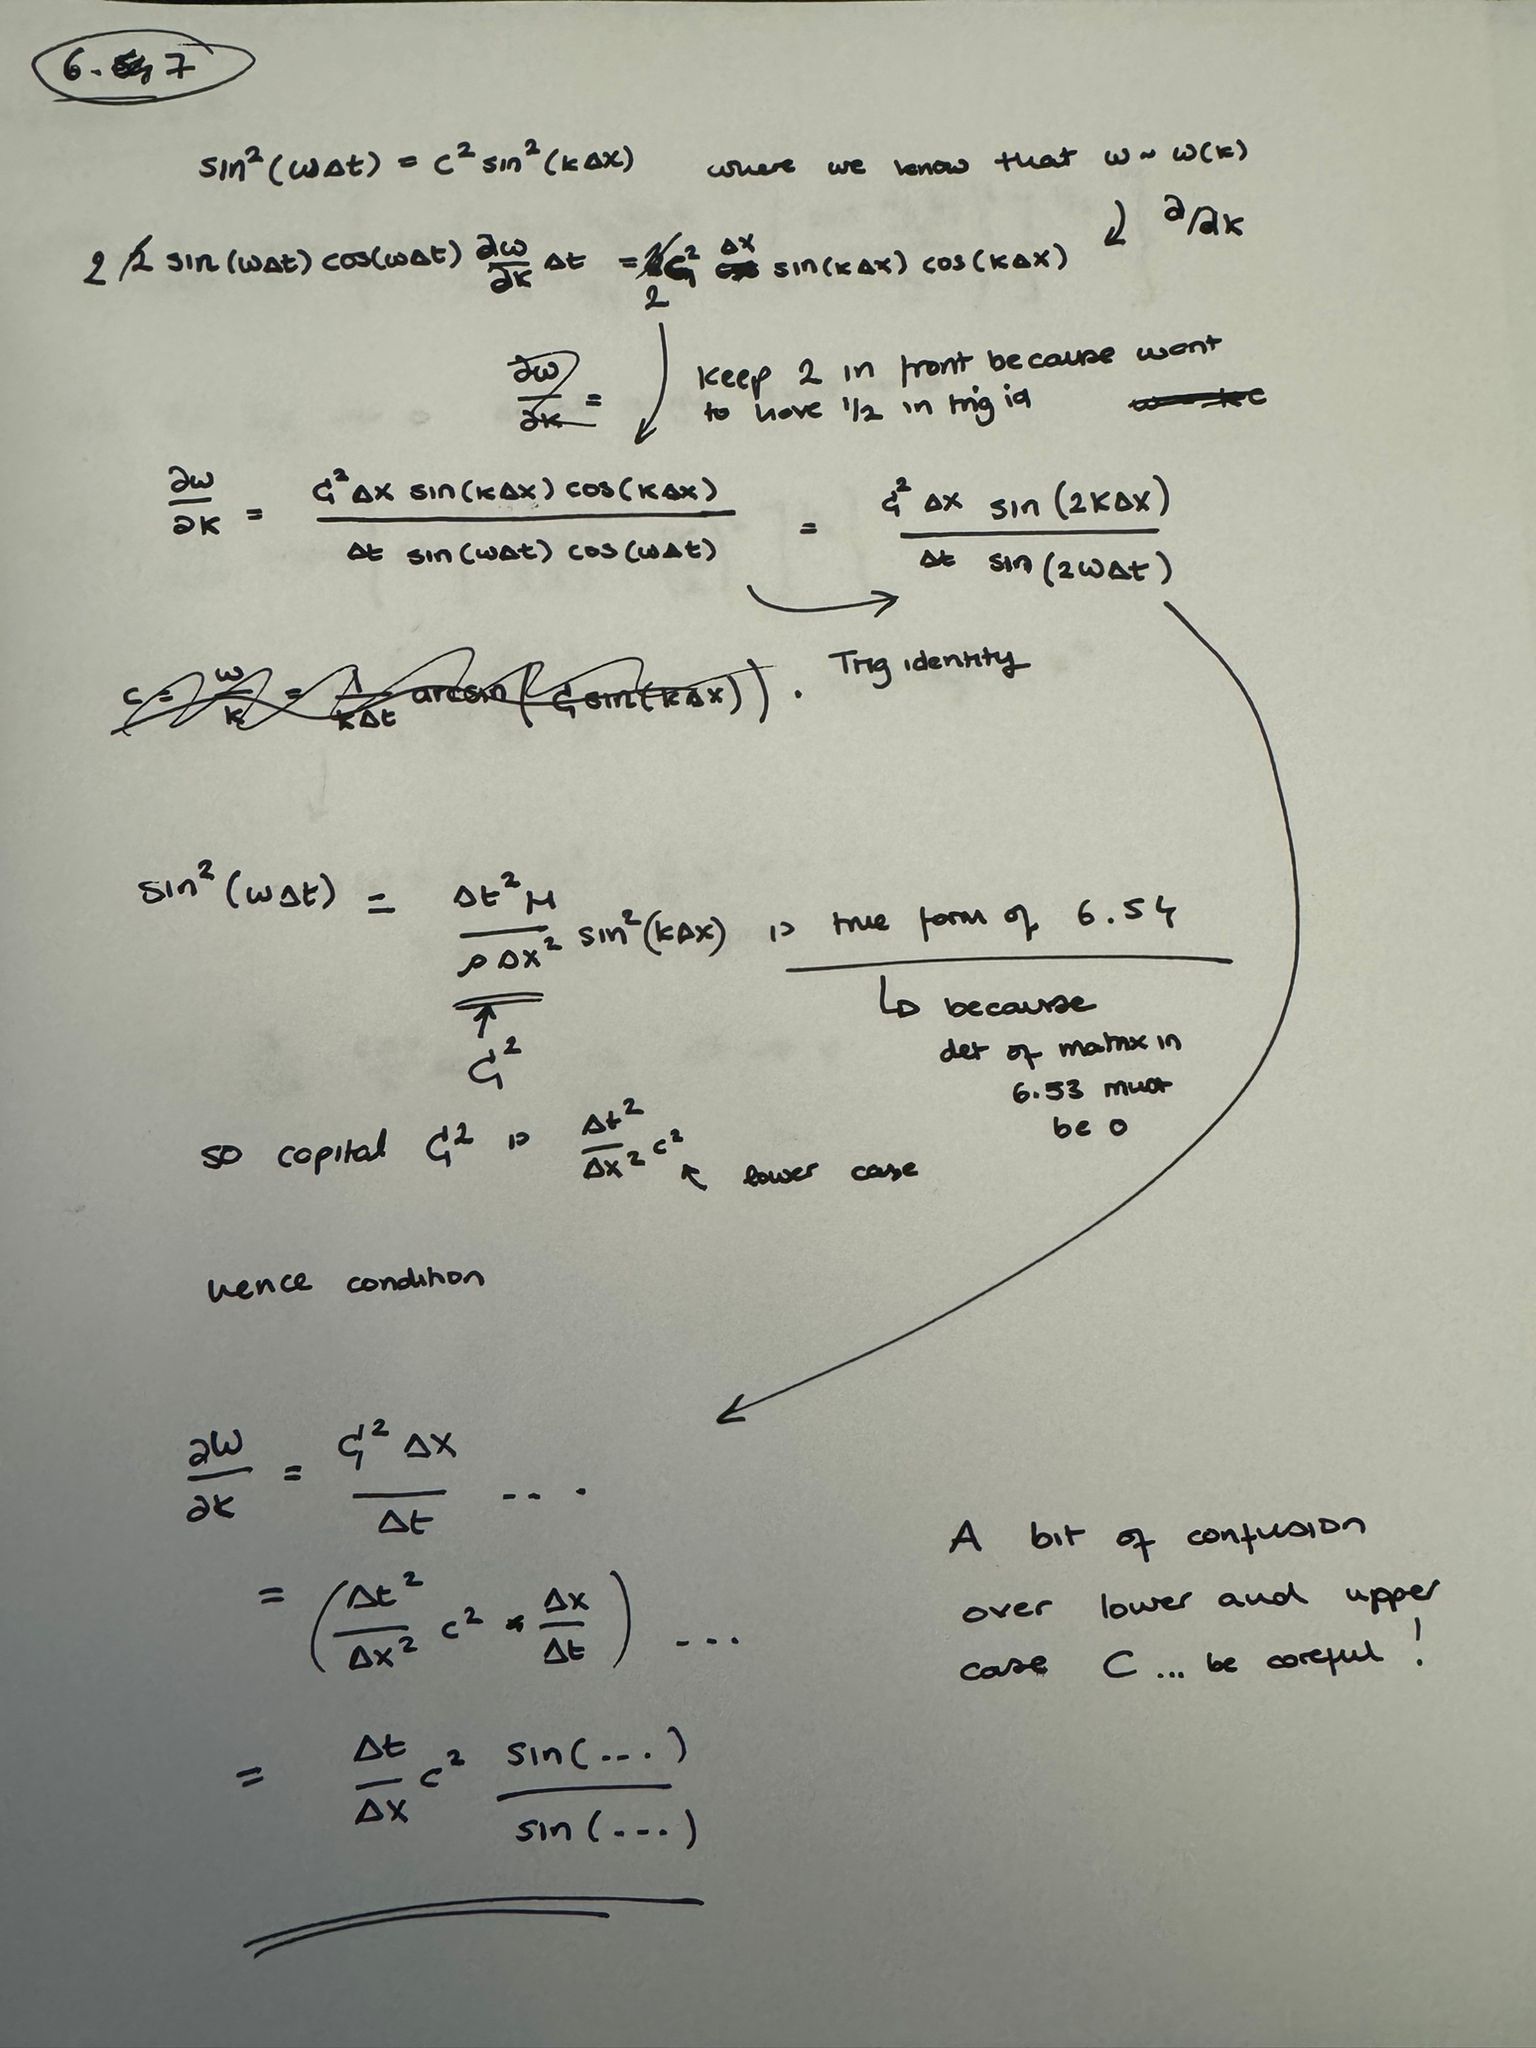 6.7
sin²(ωΔt) = C² sin²(kΔx) where we know that ω ~ ω(k)
↓ ∂/∂k
2 sin(ωΔt) cos(ωΔt) ∂ω/∂k Δt = 2 C² Δx sin(kΔx) cos(kΔx)
∂ω/∂k =
keep 2 in front because want
to have 1/2 in trig id
∂ω/∂k = C² Δx sin(kΔx) cos(kΔx) / Δt sin(ωΔt) cos(ωΔt) = C² Δx sin(2kΔx) / Δt sin(2ωΔt)
Trig identity
c = ω/k = 1/kΔt arcsin(C sin(kΔx)).
sin²(ωΔt) = Δt² μ / ρ Δx² sin²(kΔx) is true form of 6.54
↑
C²
↳ because
det of matrix in
6.53 must
be 0
so capital C² is Δt²/Δx² c²
↖ lower case
hence condition
∂ω/∂k = C² Δx / Δt ....
= (Δt²/Δx² c² * Δx/Δt) ...
= Δt/Δx c² sin(....) / sin(....)
A bit of confusion
over lower and upper
case C ... be careful!